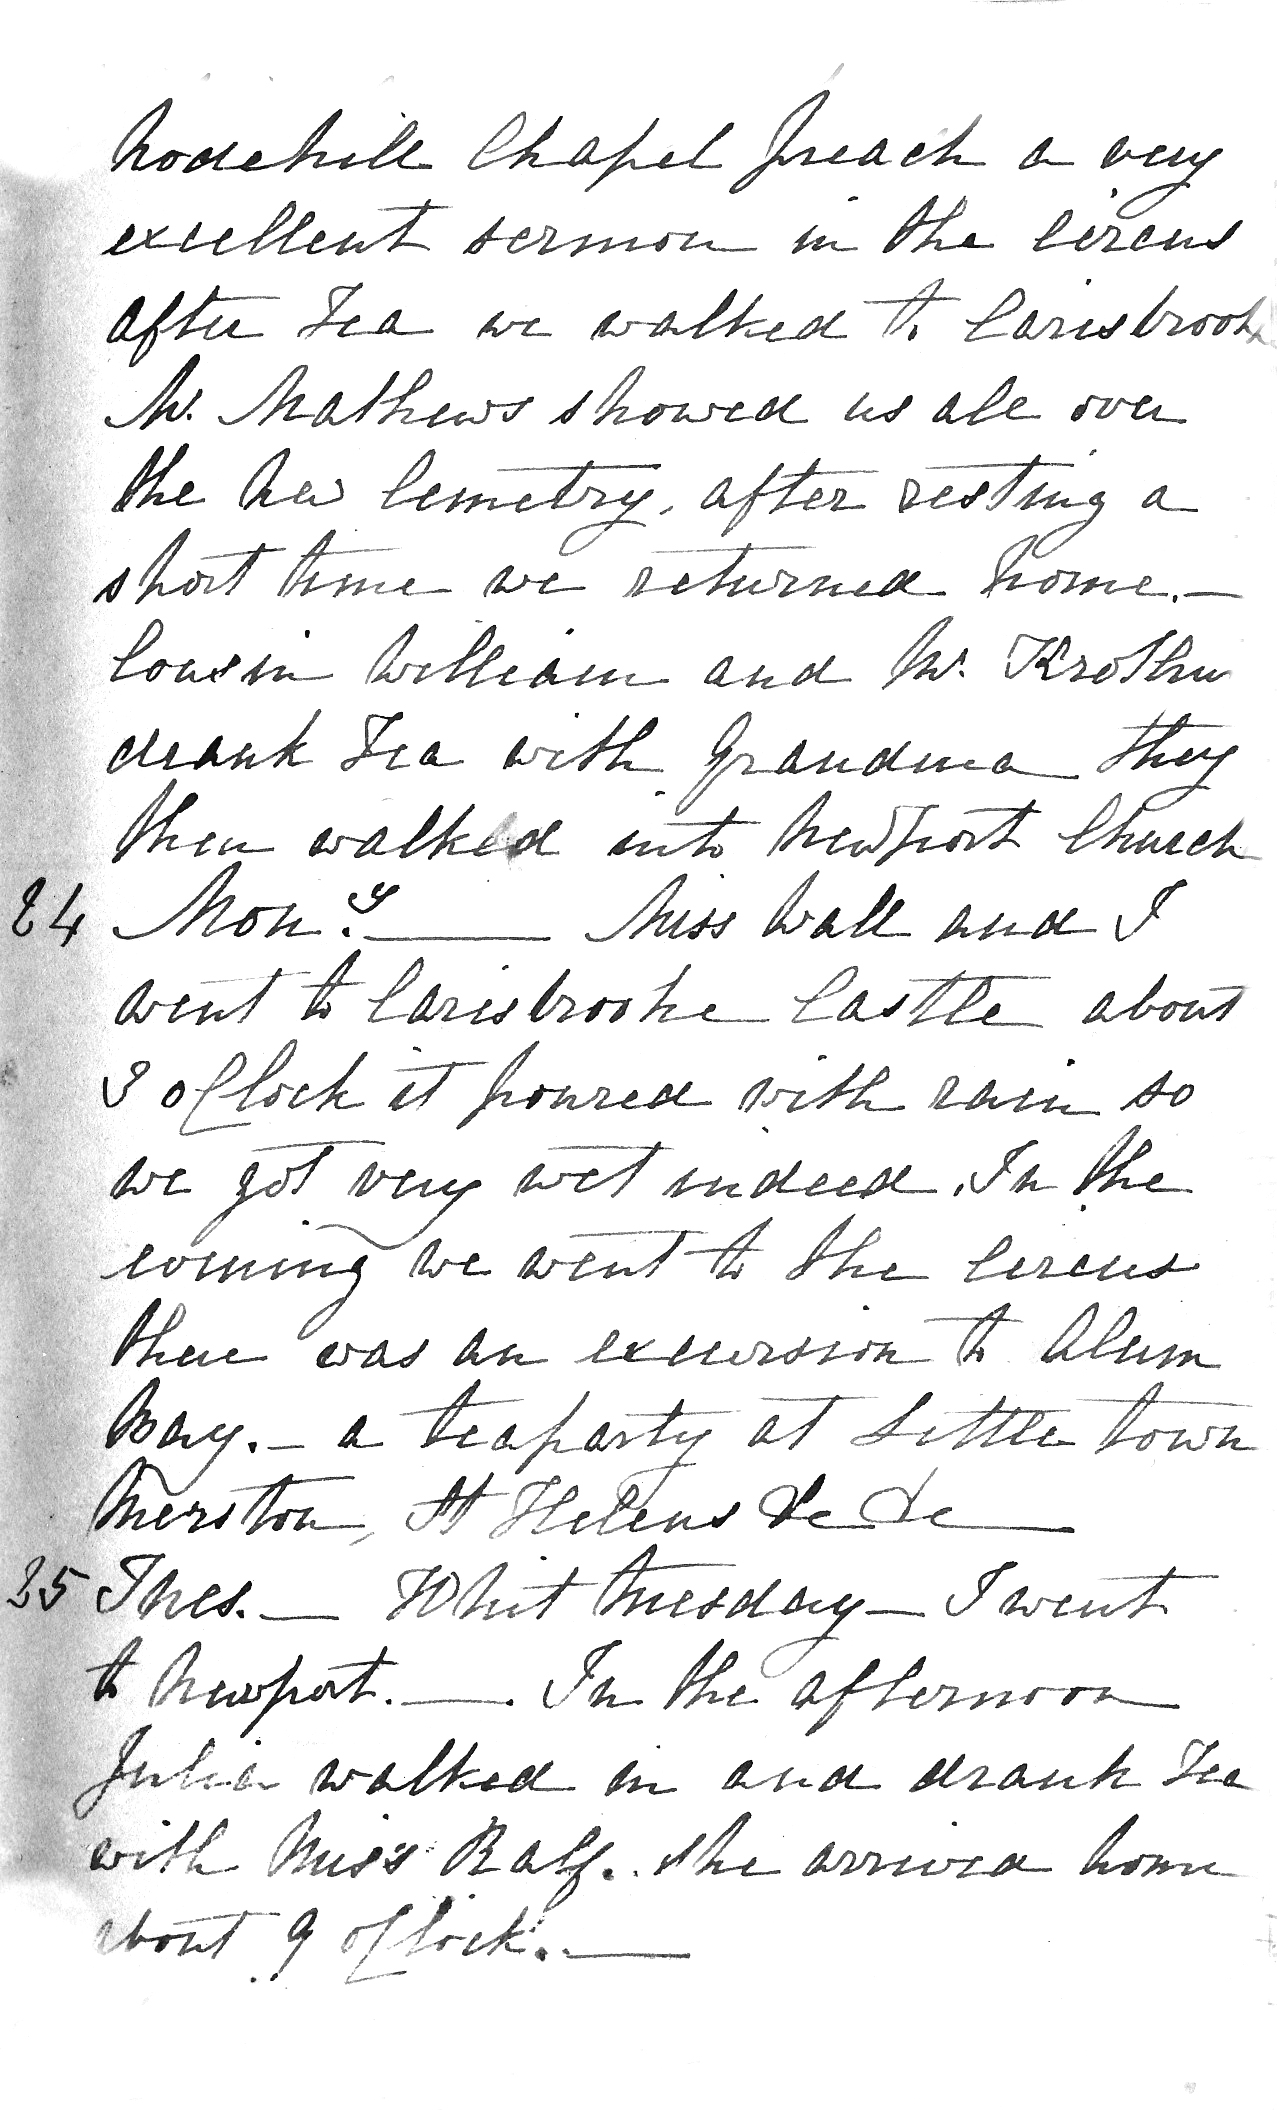 Nodehill Chapel preach a very
excellent sermon in the Circus
after Tea we walked to Carisbrooke
Mr. Mathews showed us all over
the New Cemetry, after resting a
short time we returned home.—
Cousin William and Mr.
drank Tea with Grandma they
then walked into Newport Church
24 Mon.y — Miss Wall and I
went to Carisbrooke Castle about
3 oClock it poured with rain so
we got very wet indeed. In the
evening we went to the Circus
there was an excursion to Alum
Bay. — a teaparty at Little town
Merston, St Helens &c &c —
25 Tues. — Whit Tuesday — I went
to Newport. — . In the afternoon
Julia walked in and drank Tea
with Miss Ralf. . she arrived home
about 9 oClock. . —